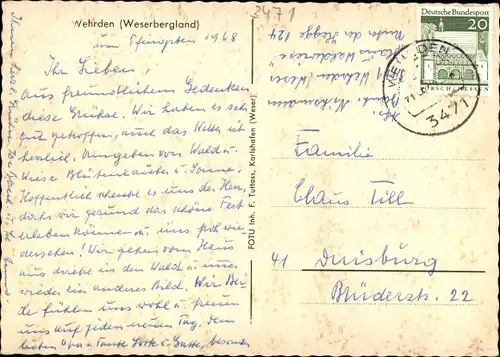 Wehrden (Weserbergland)
3471
um Pfingsten 1968
Ihr Lieben,
aus freundlichem Gedenken
diese Grüße. Wir haben es sehr
gut getroffen, auch das Wetter ist
herrlich. Umgeben von Wald u.
Wiese Blütenzauber u. Sonne.
Hoffentlich schenkt es uns der Herr,
dass wir gesund das schöne Fest
erleben können u. uns froh wie-
dersehen! Wir gehen vom Haus
aus direkt in den Wald u. immer
wieder ein anderes Bild. Wir Bei-
de fühlen uns wohl u. freuen
uns auf jeden neuen Tag. Dem
lieben Opa Tante u. Gatte,
FOTO Inh. F. Tuttass, Karlshafen (Weser)
Deutsche Bundespost
20
LORSCH/HESSEN
WEHRDEN
3471
Haus Waldwiese
Wehrden (Weser
Familie
Claus Till
41 Duisburg
Blüderstr. 22